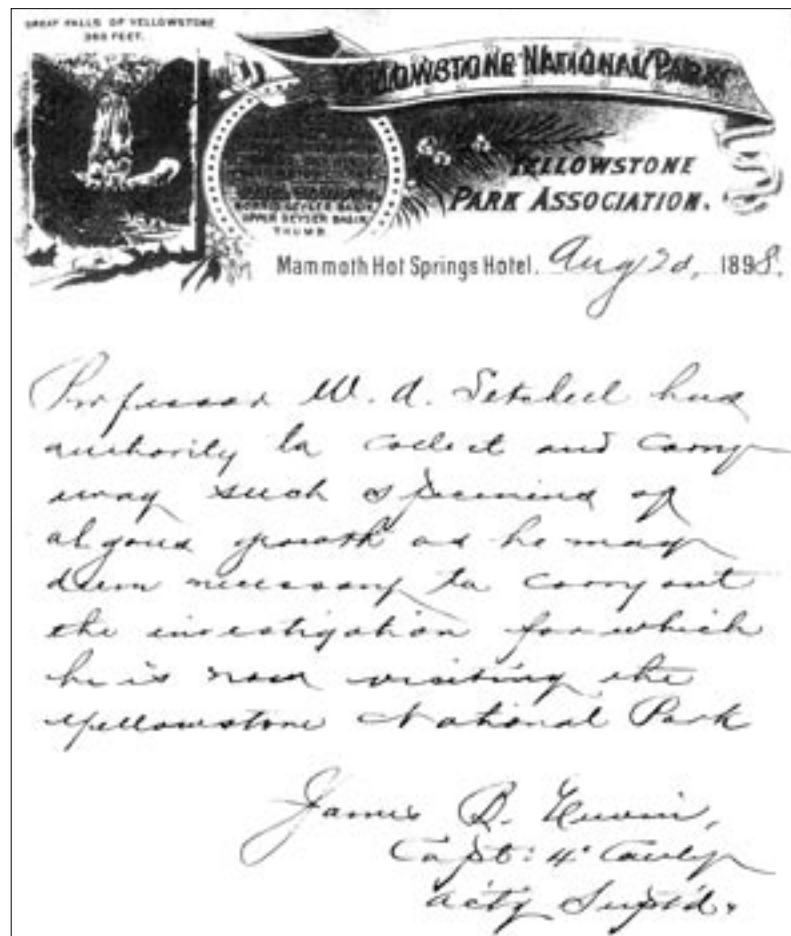 GREAT FALLS OF YELLOWSTONE
360 FEET.
YELLOWSTONE NATIONAL PARK
YELLOWSTONE
PARK ASSOCIATION.
NORRIS GEYSER BASIN,
UPPER GEYSER BASIN,
THUMB.
Mammoth Hot Springs Hotel. Aug 2d, 1898.
Professor W. A. Setchell has
authority to collect and carry
away such specimens of
algous growth as he may
deem necessary to carry out
the investigation for which
he is now visiting the
Yellowstone National Park
James B. Erwin,
Capt: 4" Cavly
actg Supt'd.